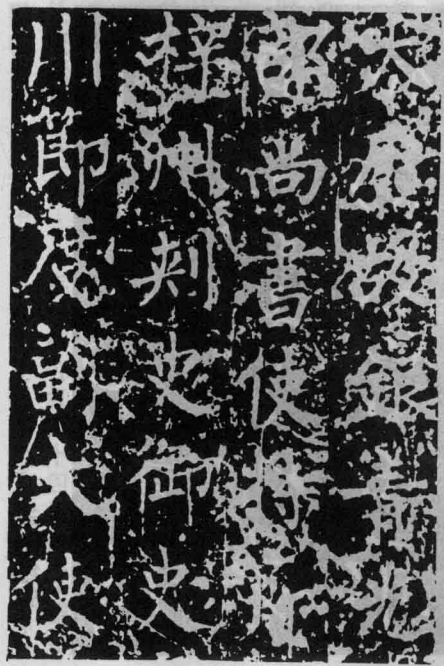 大唐故銀青光
部尚書使持
梓州刺史御史
川節度副大使